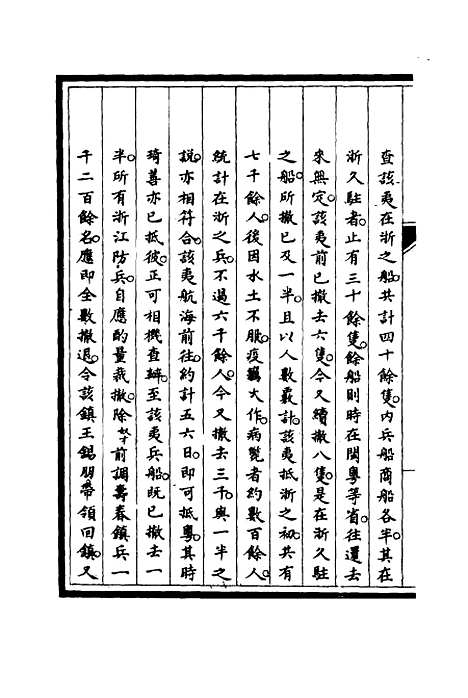 查該夷在浙之船。共計四十餘隻。內兵船商船各半。其在
浙久駐者。止有三十餘隻。餘船則時在閩粵等省。往還去
來無定。該夷前已撤去六隻。今又續撤八隻。是在浙久駐
之船。所撤已及一半。且以人數覈計。該夷抵浙之初。共有
七千餘人。後因水土不服。疫癘大作。病斃者約數百餘人。
統計在浙之兵。不過六千餘人。今又撤去三千。與一半之
說。亦相符合。該夷航海前往。約計五六日。即可抵粵。其時
琦善亦已抵彼。正可相機查辦。至該夷兵船。既已撤去一
半。所有浙江防兵。自應酌量裁撤。除奴才前調壽春鎮兵一
千二百餘名。應即全數撤退。令該鎮王錫朋帶領回鎮。又